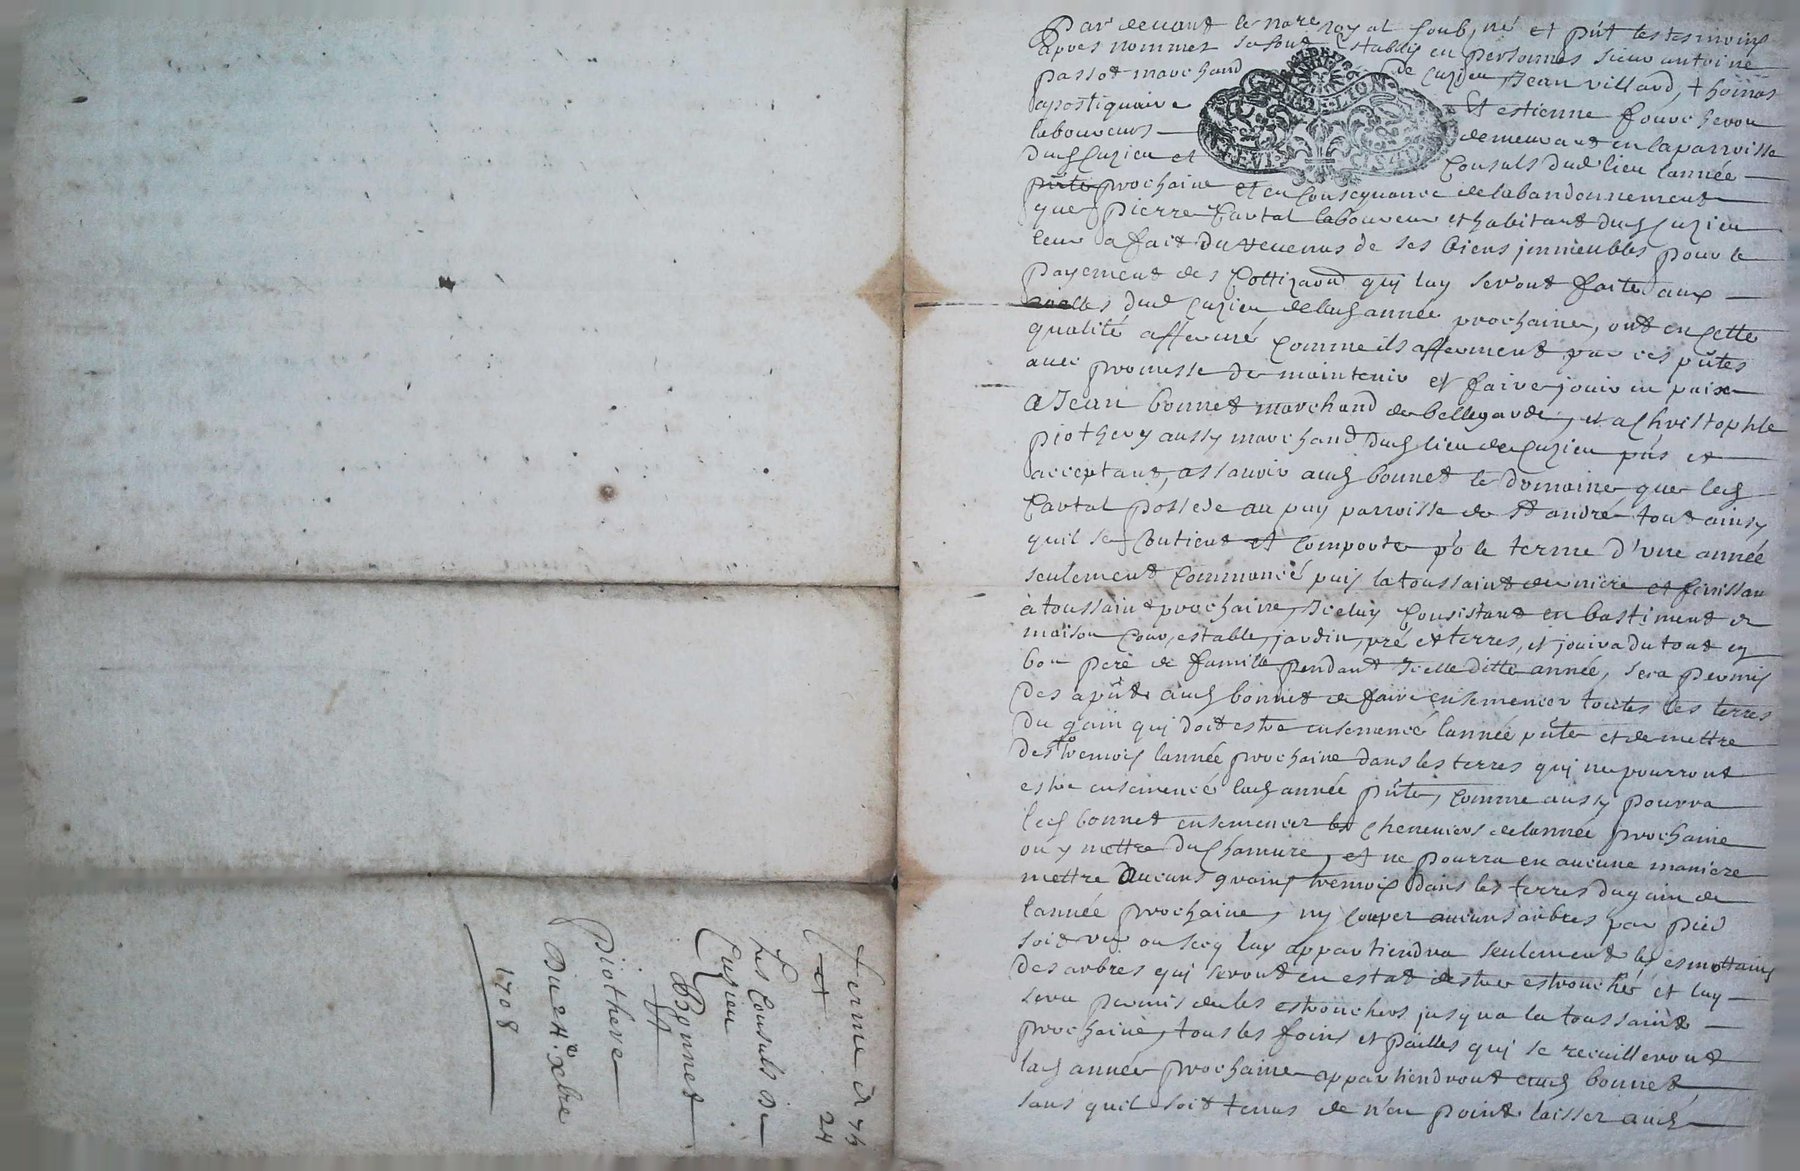 Par devant le no.re royal soub,né et p̃nt les tesmoins
apres nommes se sont establis en personnes sieur antoine
passot marchand de Cuzieu, Jean villard, thoinas
apostiquaire Et estienne fourcheron
laboureurs demeurant en la parroisse
dud Cuzieu et Consuls dud lieu lannée
prochaine et en Consequance de labandonnement
que pierre Cartal laboureur et habitant dud Cuzieu
leur a fait du revenus de ses biens jmmeubles pour le
payement des Cottizaõns quj luy seront faites aux
dud Cuzieu de lad année prochaine, ont en Cette
qualité affermé Comme ils afferment par ces p̃ntes
avec promesse de maintenir et faire jouir en paix
a Jean bonnet marchand de bellegarde, et a Christophle
piothery aussy marchand dud lieu de Cuzieu p̃ns et
acceptant, assavoir aud bonnet le domaine que led
Cartal possede au puy parroisse de St andré tout ainsy
quil se Contient et Comporte po le terme d'une année
seulement Commencé puis la toussaint derniere et finissan
à toussaint prochaine, Iceluy Consistant en bastiment de
maison Cour, estable, jardin, pré et terres, et jouira du tout en
bon pere de famille pendant Icelle ditte année, sera permis
des a p̃nt aud bonnet de faire ensemencer toutes les terres
du gain quj doit estre ensemencé lannée p̃nte et de mettre
des tremois lannée prochaine dans les terres quj ne pourront
estre ensemencé lad année p̃nte, Comme aussy pourra
led bonnet ensemencer les Cheneviers de lannée prochaine
ou y mettre du Chamure, et ne pourra en aucune maniere
mettre Aucuns grains tremois dans les terres du gain de
lannée prochaine, ny Couper aucuns arbres par pied
soit vif ou secq luy appartiendra seulement les esmottains
des arbres quj seront en estat destre estrouchés et luy
sera permis de les estrouchers jusqua la toussaint
prochaine, tous les foins et pailles quj se recuilleront
lad année prochaine appartiendront aud bonnet,
sans quil soit tenus de n'en point laisser aud
ferme de 24
Les Consuls de
Cuzieu
Bonnet
Piothere
Du 24.e xbre
1708